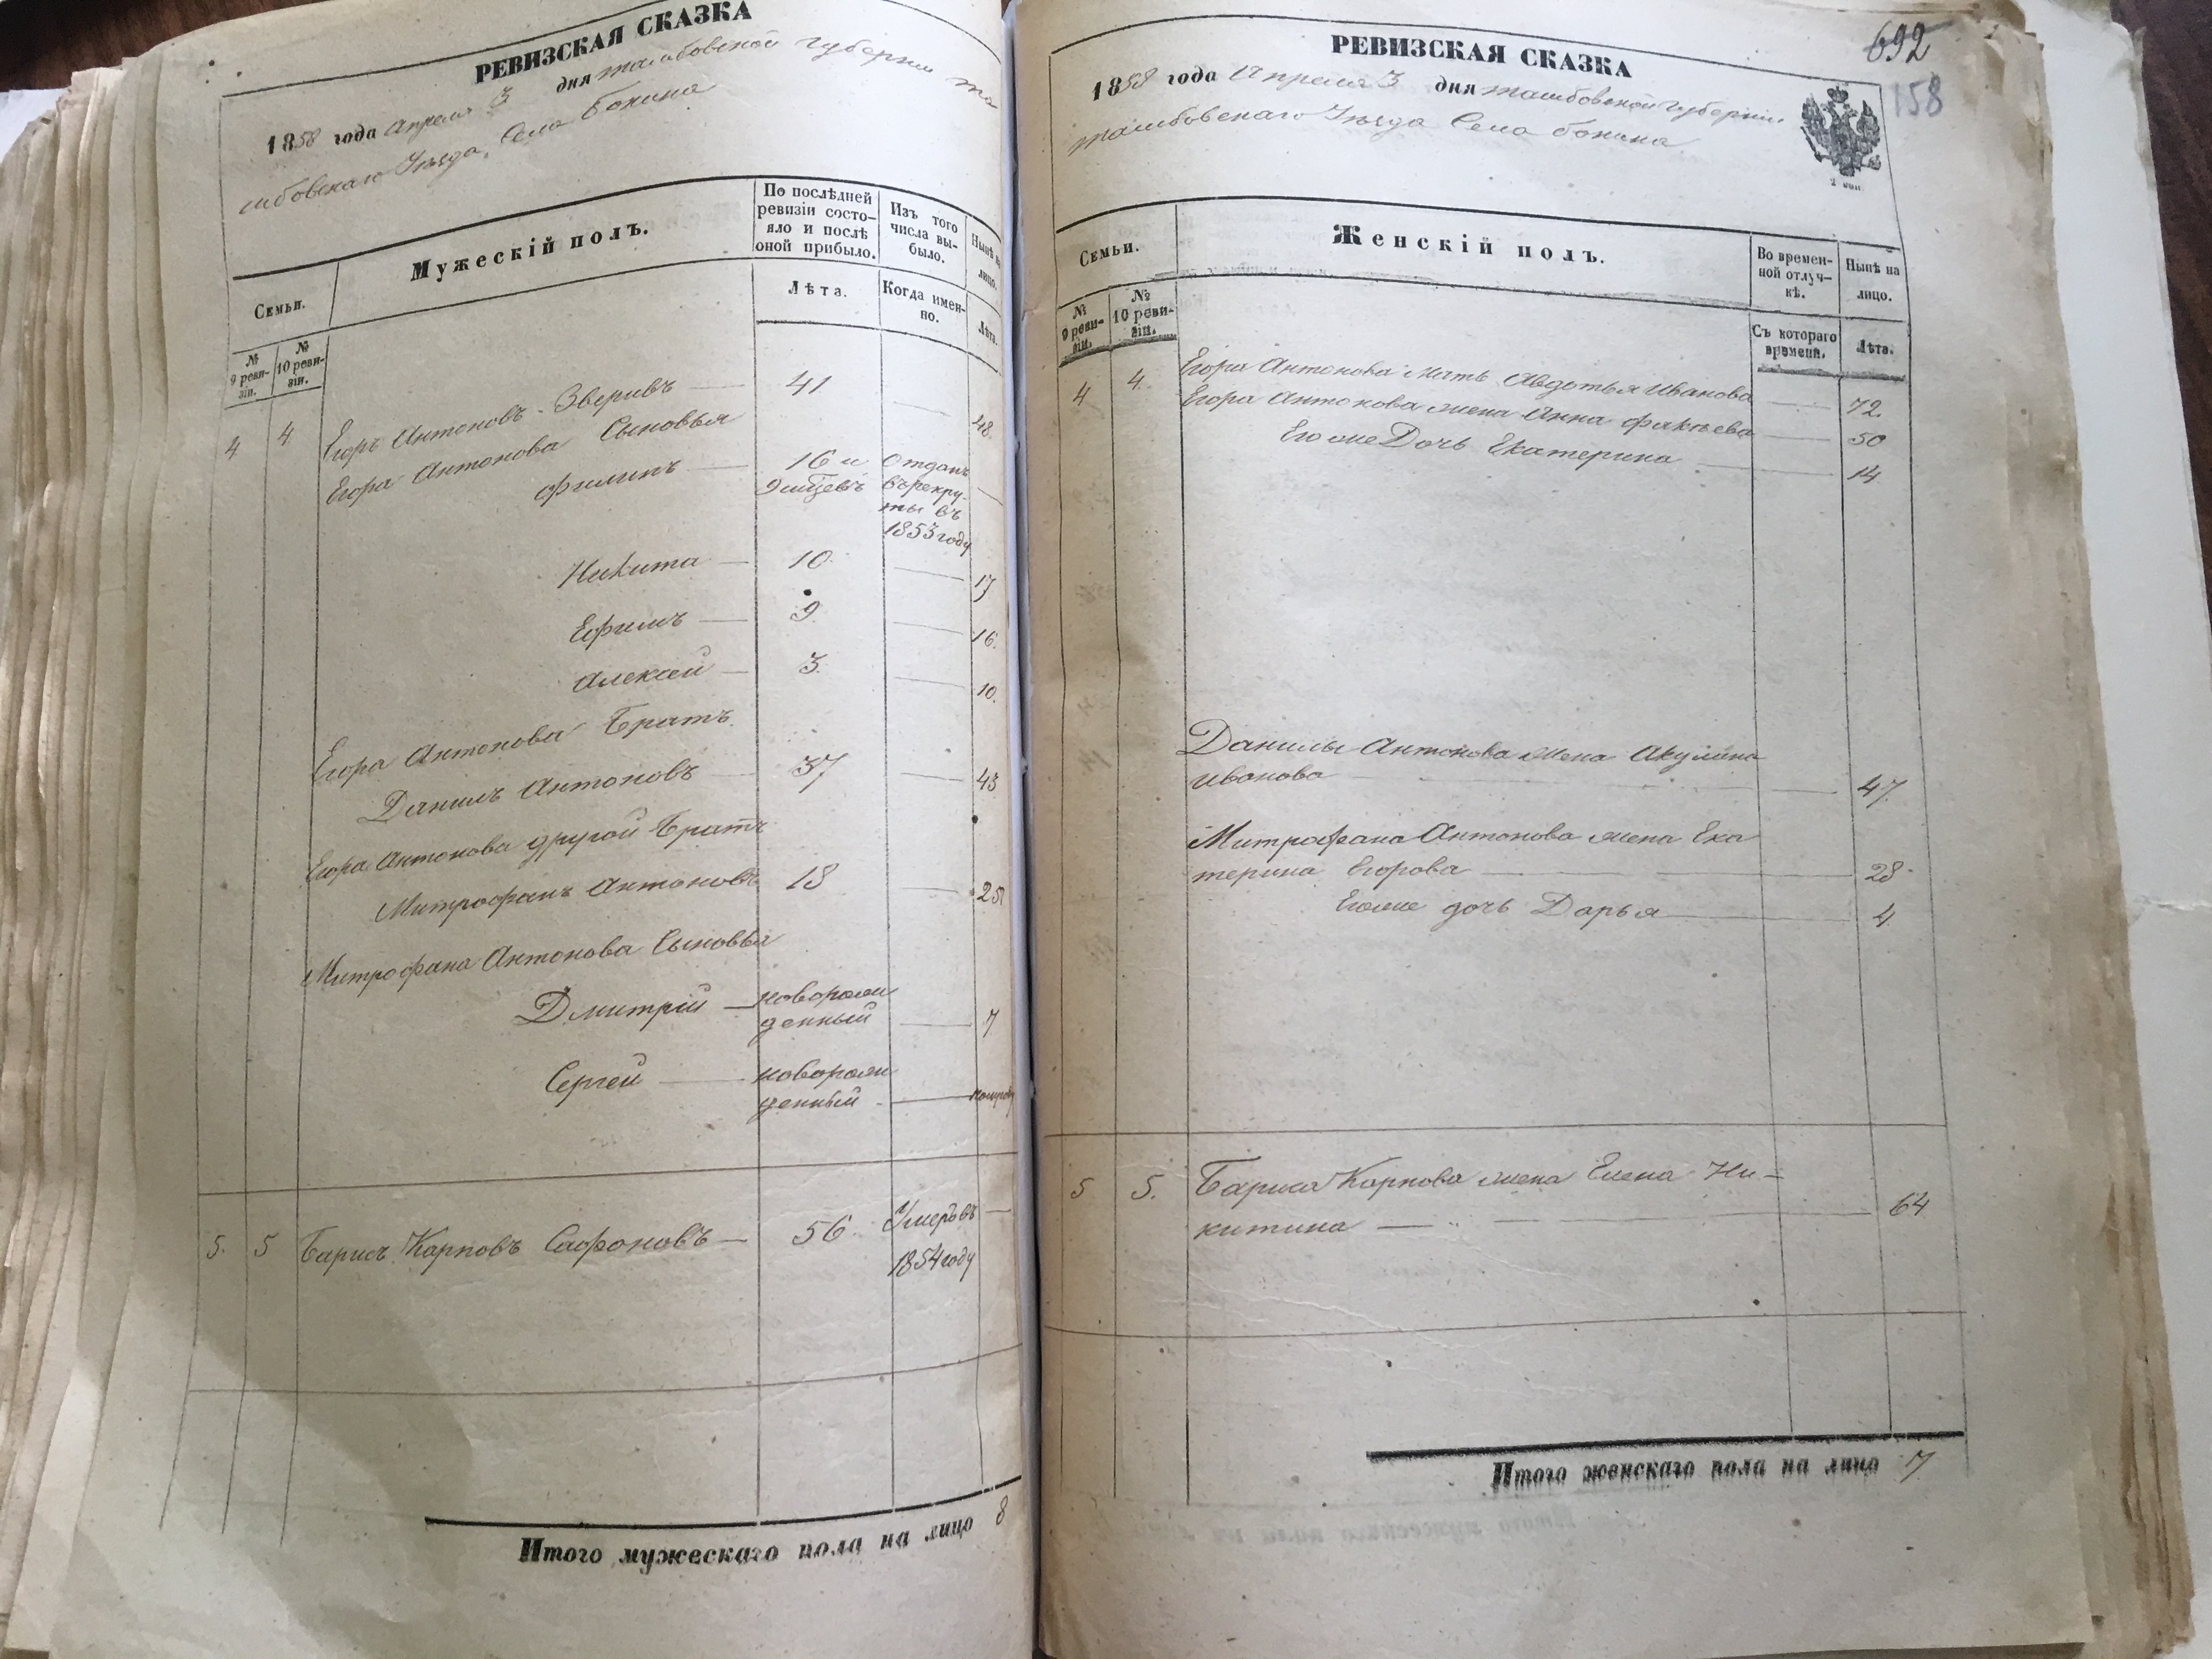 РЕВИЗСКАЯ СКАЗКА
1858 года Апреля 3 дня тамбовской губернии та
мбовскаго Уѣзда, Села Бокина
Семьи.
Мужескій полъ.
По послѣдней ревизіи состояло и послѣ оной прибыло.
Изъ того числа выбыло.
Нынѣ на лицо.
Лѣта.
Когда именно.
Лѣта.
№ 9 ревизіи.
№ 10 ревизіи.
4 4 Егоръ Антоновъ Зверивъ — 41 — 48.
Егора Антонова Сыновья
Филипъ — 16 и Отданъ —
9 мцевъ въ рекру-
ты въ
1853 году
Никита — 10. — 17
Ефимъ — 9. — 16.
Алексей — 3. — 10.
Егора Антонова Братъ
Данилъ Антоновъ — 37 — 43
Егора Антонова другой Братъ
Митрофанъ Антоновъ 18 — 25
Митрофана Антонова Сыновья
Дмитрій — новорож
денный — 7
Сергей — новорож
денный —
5. 5 Барисъ Карповъ Сафоновъ — 56 Умеръ въ —
1854 году
Итого мужескаго пола на лицо 8
692
158
РЕВИЗСКАЯ СКАЗКА
1858 года Апреля 3 дня тамбовской губерніи
тамбовскаго Уѣзда Села Бокина
2 коп
Семьи.
Женскій полъ.
Во временной отлучкѣ.
Нынѣ на лицо.
№ 9 ревизіи.
№ 10 ревизіи.
Съ котораго времени.
Лѣта.
4 4. Егора Антонова мать Авдотья Иванова — 72.
Егора Антонова жена Анна — 50
Его же Дочь Екатерина — 14
Данилы Антонова жена Акулина
Иванова — 47.
Митрофана Антонова жена Ека
терина Егорова — 28.
Его же дочь Дарья — 4
5 5. Бариса Карпова жена Елена Ни-
китина — 64
Итого женскаго пола на лицо 7